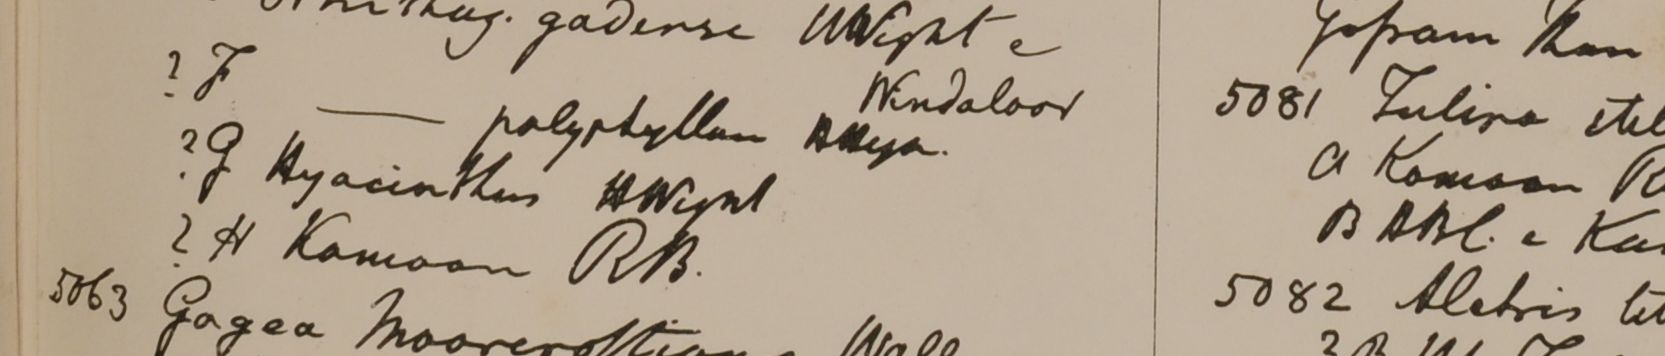 gadense HWight e
? F —— polyphyllum HHeyn.
Windaloor
? G Hyacinthus HWight
? H Kamaon RB.
5063 Gagea Moorcroftiana Wall
Gosam Than
5081 Tulipa stel
a Kamaon R
B HBC. e Kam
5082 Aletris